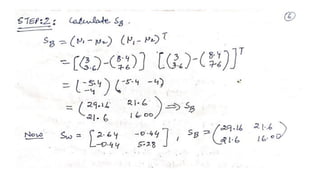 STEP:2: Calculate SB. 6
SB = (M1 - M2) (M1 - M2)T
= [(3 3.6) - (8.4 7.6)] [(3 3.6) - (8.4 7.6)]T
= (-5.4 -4) (-5.4 -4)
= (29.16 21.6 21.6 16.00) ⇒ SB
Now Sw = [2.64 -0.44 -0.44 5.28], SB = (29.16 21.6 21.6 16.00)